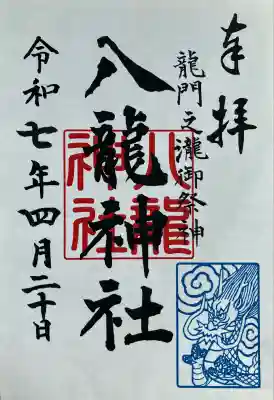 奉拝
龍門之瀧御祭神
八龍神社
八龍
神社
令和七年四月二十日